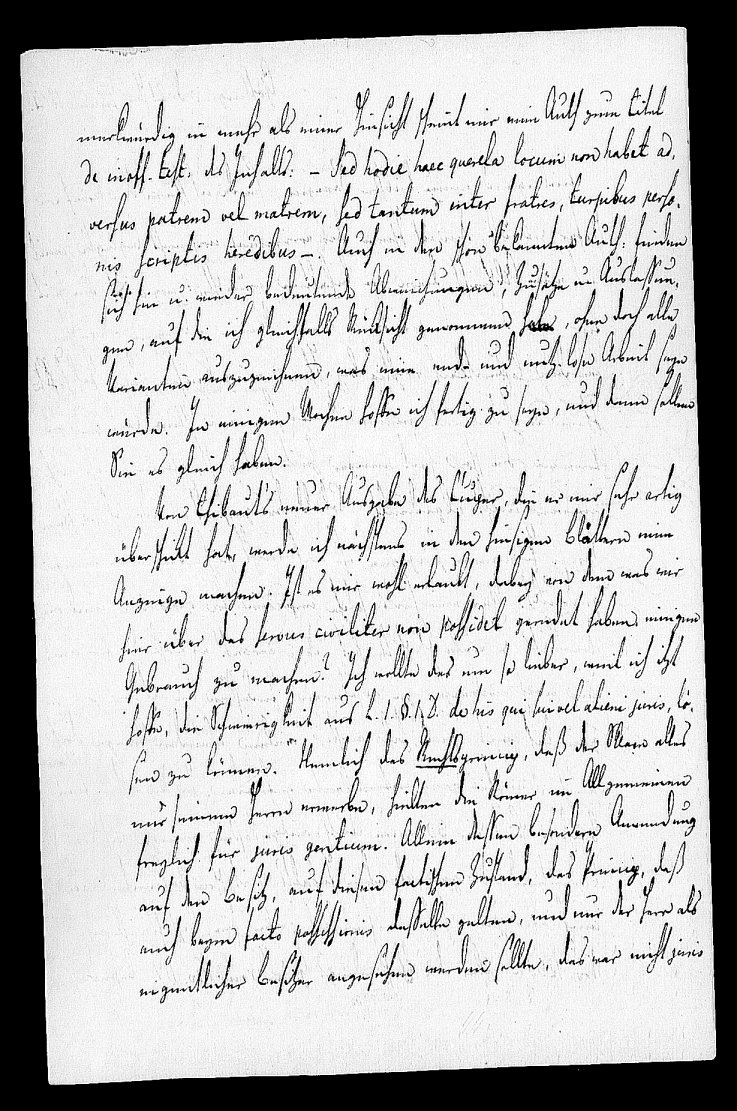 merkwürdig in mehr als einer Hinsicht scheint mir eine Auth zum titel
de inoff. test. des Inhalts: – Sed hodie haec querela locum non habet ad,
versus patrem vel matrem, sed tantum inter fratres, turpibus perso,
nis scriptis heredibus –. Auch in den schon bekannten Auth: finden
sich hin u. wieder bedeutende Abweichungen, Zusätze u Auslassun,
gen, auf die ich gleichfalls Rücksicht genommen, ohne doch alle
Varianten auszuzeichnen, was eine end- und nutzlose Arbeit seyn
würde. In einigen Wochen hoffe ich fertig zu seyn, und dann sollen
Sie es gleich haben.
Von Thibauts neuer Ausgabe des Cuper, die er mir sehr artig
überschickt hat, werde ich nächstens in den hiesigen Blättern eine
Anzeige machen. Ist es mir wohl erlaubt, dabey von dem was wir
hier über das servus civiliter non possidet geredet haben, einigen
Gebrauch zu machen? Ich wollte das um so lieber, weil ich itzt
hoffe, die Schwierigkeit aus L. 1. §. 1. D. de his qui sui vel alieni juris, lö,
sen zu können. Nemlich das Rechtsprincip, daß der Sklave alles
nur seinem Herrn erwerbe, hielten die Römer im Allgemeinen
freylich für juris gentium. Allein dessen besondere Anwendung
auf den Besitz, auf diesen factischen Zustand, das Princip, daß
auch beym facto possessionis dasselbe gelten, und nur der Herr als
eigentlicher Besitzer angesehen werden sollte, das war nicht juris